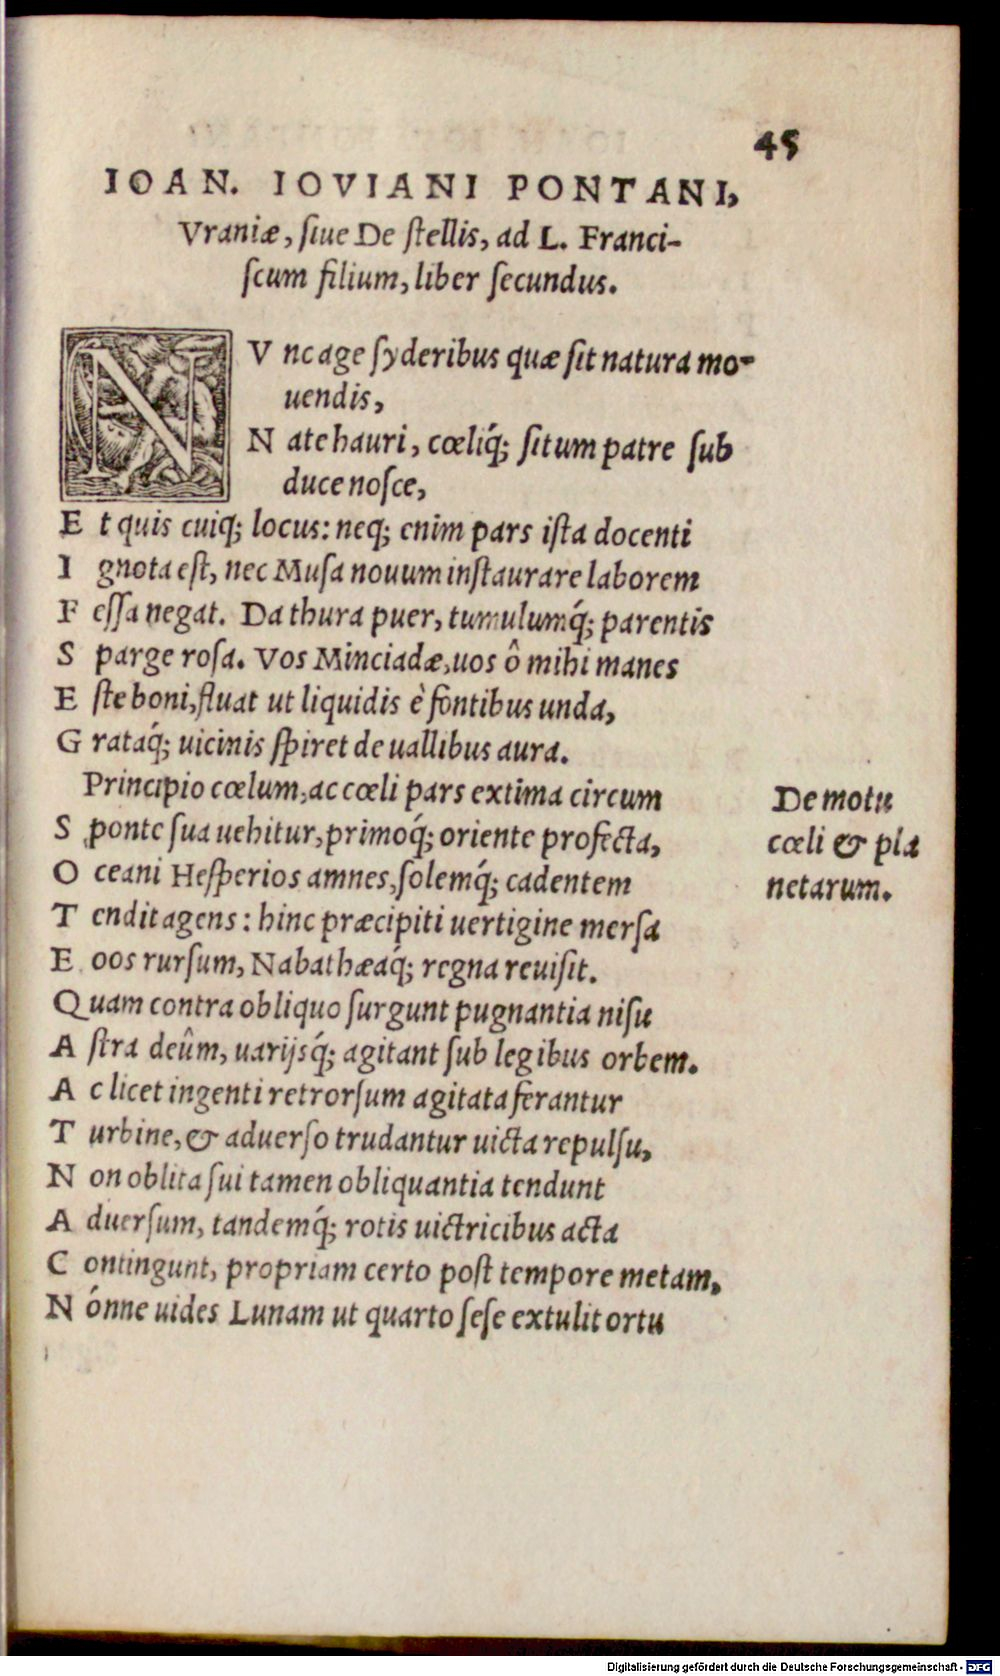 45
IOAN. IOVIANI PONTANI,
Vraniæ, ſiue De ſtellis, ad L. Franci-
ſcum filium, liber ſecundus.
NVnc age ſyderibus quæ ſit natura mo-
uendis,
Nate hauri, cœliq́; ſitum patre ſub
duce noſce,
Et quis cuiq; locus: neq; enim pars iſta docenti
Ignota eſt, nec Muſa nouum inſtaurare laborem
Feſſa negat. Da thura puer, tumulumq́; parentis
Sparge roſa. Vos Minciadæ, uos ô mihi manes
Eſte boni, fluat ut liquidis è fontibus unda,
Grataq́; uicinis ſpiret de uallibus aura.
Principio cœlum, ac cœli pars extima circum
Sponte ſua uehitur, primoq́; oriente profecta,
Oceani Heſperios amnes, ſolemq́; cadentem
Tendit agens: hinc præcipiti uertigine merſa
Eoos rurſum, Nabathæaq́; regna reuiſit.
Quam contra obliquo ſurgunt pugnantia niſu
Aſtra deûm, uarijsq́; agitant ſub legibus orbem.
Ac licet ingenti retrorſum agitata ferantur
Turbine, & aduerſo trudantur uicta repulſu,
Non oblita ſui tamen obliquantia tendunt
Aduerſum, tandemq́; rotis uictricibus acta
Contingunt, propriam certo poſt tempore metam,
Nónne uides Lunam ut quarto ſeſe extulit ortu
De motu
cœli & pla
netarum.
Digitalisierung gefördert durch die Deutsche Forschungsgemeinschaft - DFG